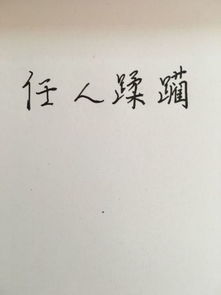 任人蹂躏